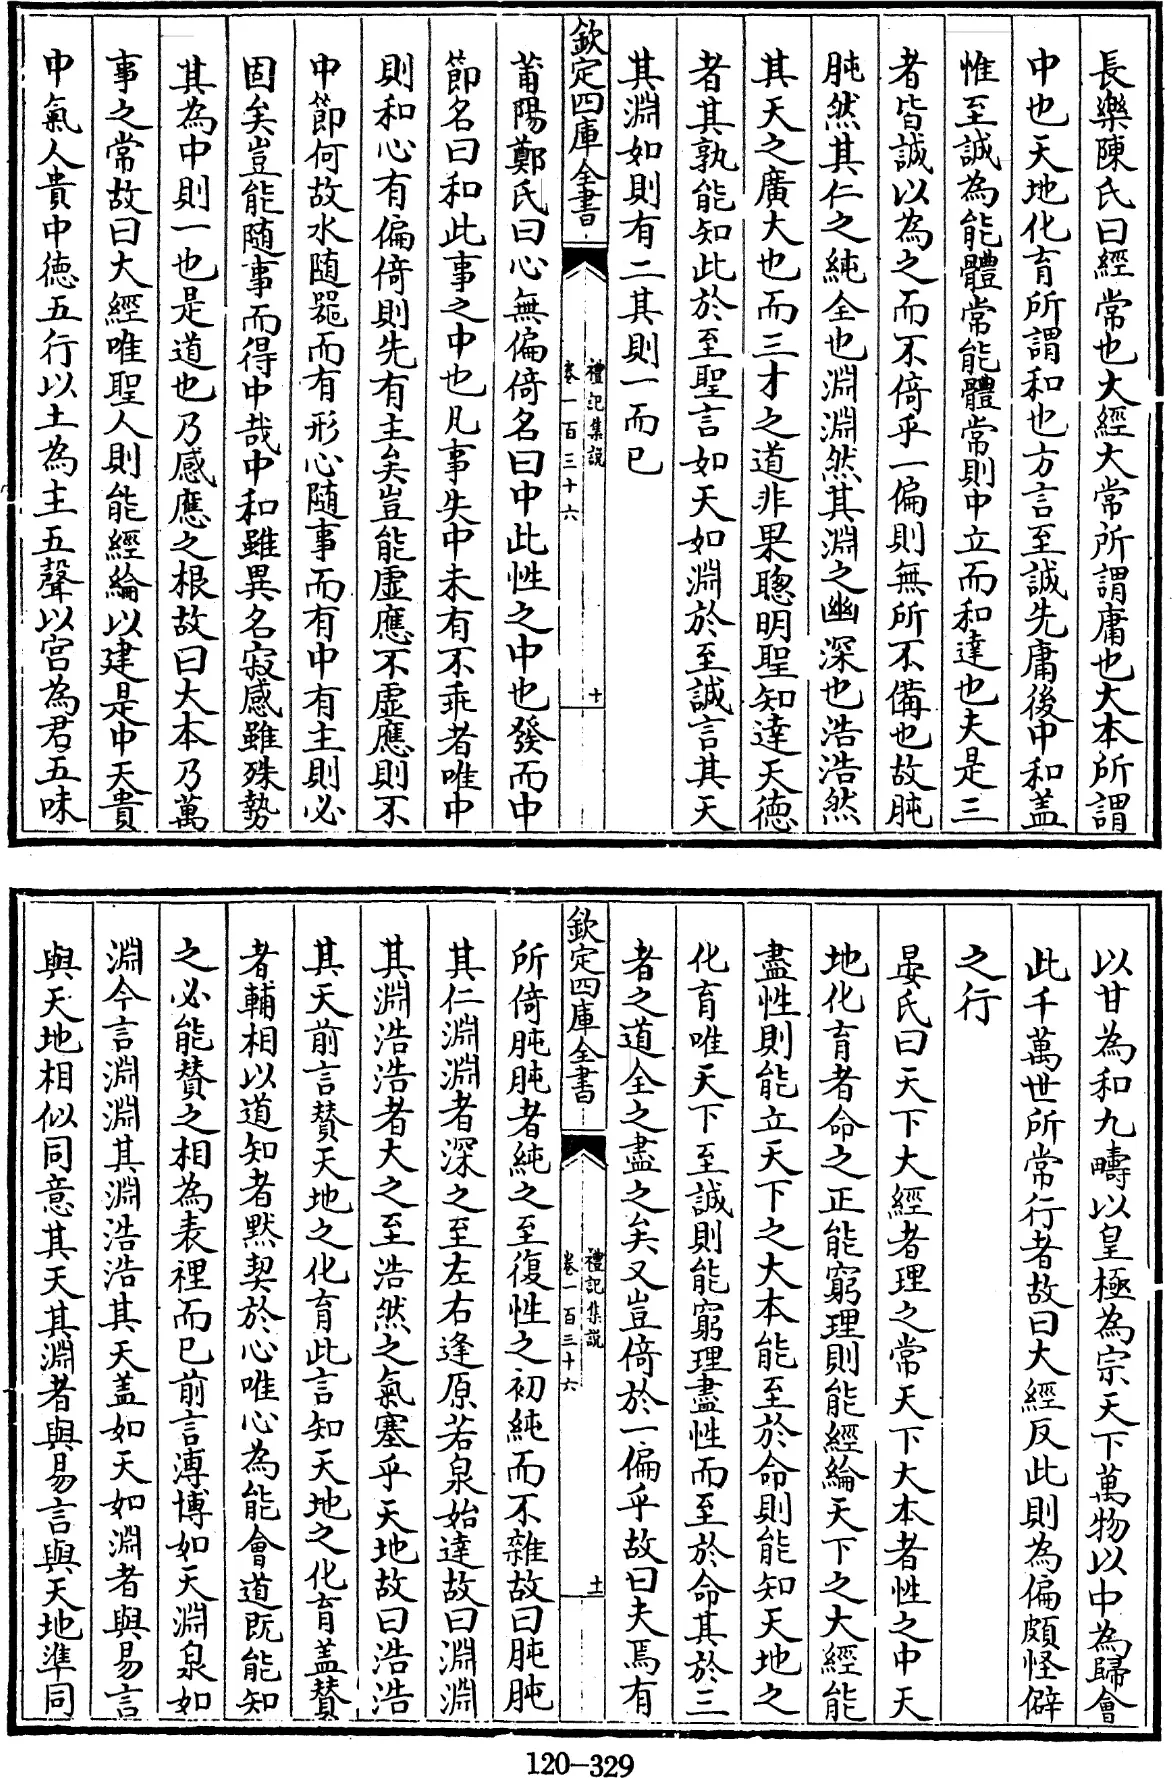 長樂陳氏曰經常也大經大常所謂庸也大本所謂
中也天地化育所謂和也方言至誠先庸後中和盖
惟至誠為能體常能體常則中立而和達也夫是三
者皆誠以為之而不倚乎一偏則無所不備也故肫
肫然其仁之純全也淵淵然其淵之幽深也浩浩然
其天之廣大也而三才之道非果聰明聖知達天德
者其孰能知此於至聖言如天如淵於至誠言其天
其淵如則有二其則一而已
欽定四庫全書
禮記集說
卷一百三十六
十
莆陽鄭氏曰心無偏倚名曰中此性之中也發而中
節名曰和此事之中也凡事失中未有不乖者唯中
則和心有偏倚則先有主矣豈能虛應不虛應則不
中節何故水随器而有形心随事而有中有主則必
固矣豈能随事而得中哉中和雖異名寂感雖殊勢
其為中則一也是道也乃感應之根故曰大本乃萬
事之常故曰大經唯聖人則能經綸以建是中天貴
中氣人貴中德五行以土為主五聲以宫為君五味
以甘為和九疇以皇極為宗天下萬物以中為歸會
此千萬世所常行者故曰大經反此則為偏頗怪僻
之行
晏氏曰天下大經者理之常天下大本者性之中天
地化育者命之正能窮理則能經綸天下之大經能
盡性則能立天下之大本能至於命則能知天地之
化育唯天下至誠則能窮理盡性而至於命其於三
者之道全之盡之矣又豈倚於一偏乎故曰夫焉有
欽定四庫全書
禮記集說
卷一百三十六
十一
所倚肫肫者純之至復性之初純而不雜故曰肫肫
其仁淵淵者深之至左右逢原若泉始達故曰淵淵
其淵浩浩者大之至浩然之氣塞乎天地故曰浩浩
其天前言賛天地之化育此言知天地之化育盖賛
者輔相以道知者默契於心唯心為能會道既能知
之必能賛之相為表裡而已前言溥博如天淵泉如
淵今言淵淵其淵浩浩其天盖如天如淵者與易言
與天地相似同意其天其淵者與易言與天地準同
120-329